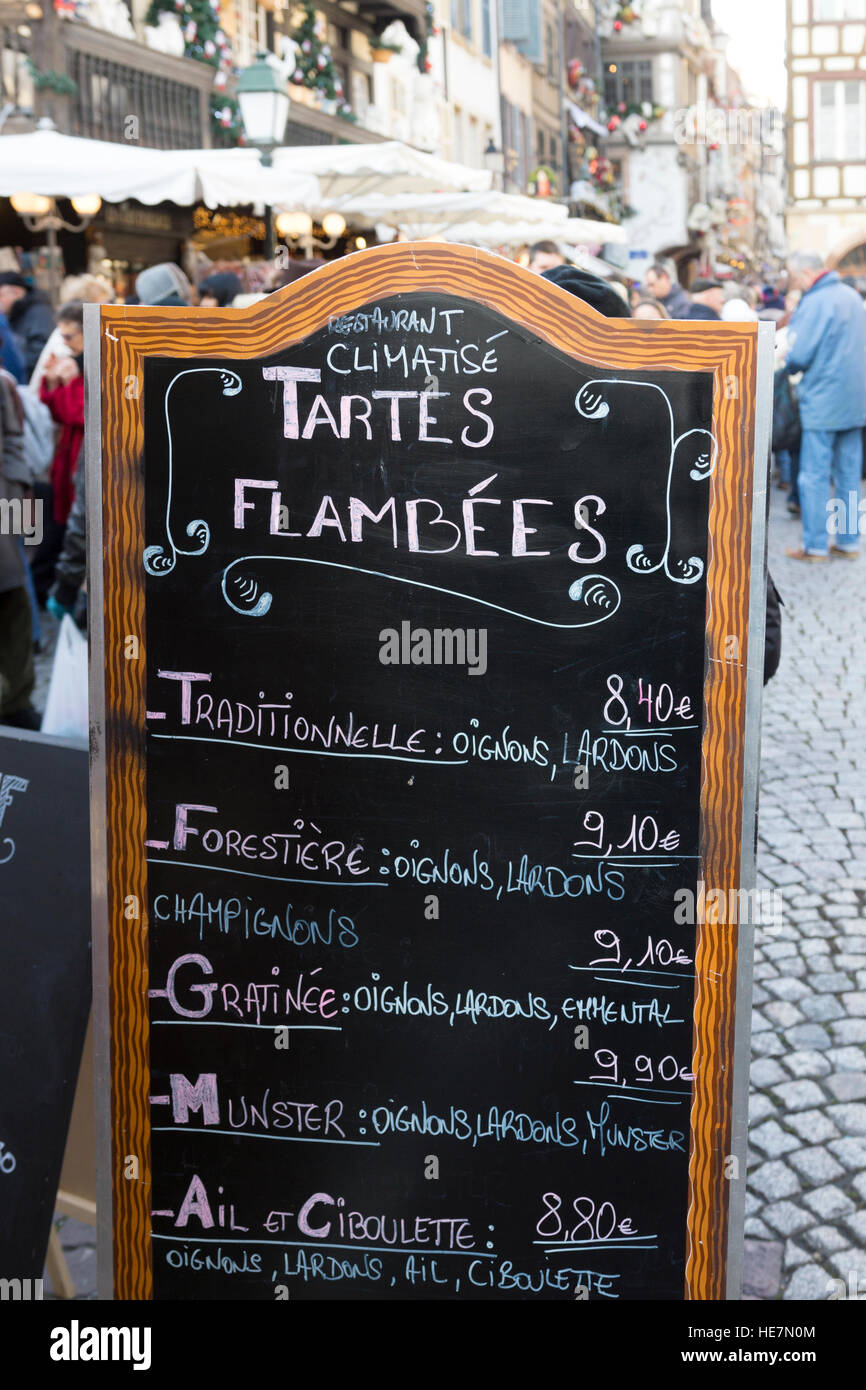 RESTAURANT
CLIMATISÉ
TARTES
FLAMBÉES
8,40€
- TRADITIONNELLE : OIGNONS, LARDONS
9,10€
- FORESTIÈRE : OIGNONS, LARDONS
CHAMPIGNONS
9,10€
- GRATINÉE : OIGNONS, LARDONS, EMMENTAL
9,90€
- MUNSTER : OIGNONS, LARDONS, MUNSTER
- AIL ET CIBOULETTE : 8,80€
OIGNONS, LARDONS, AIL, CIBOULETTE
alamy stock photo
HE7N0M
www.alamy.com